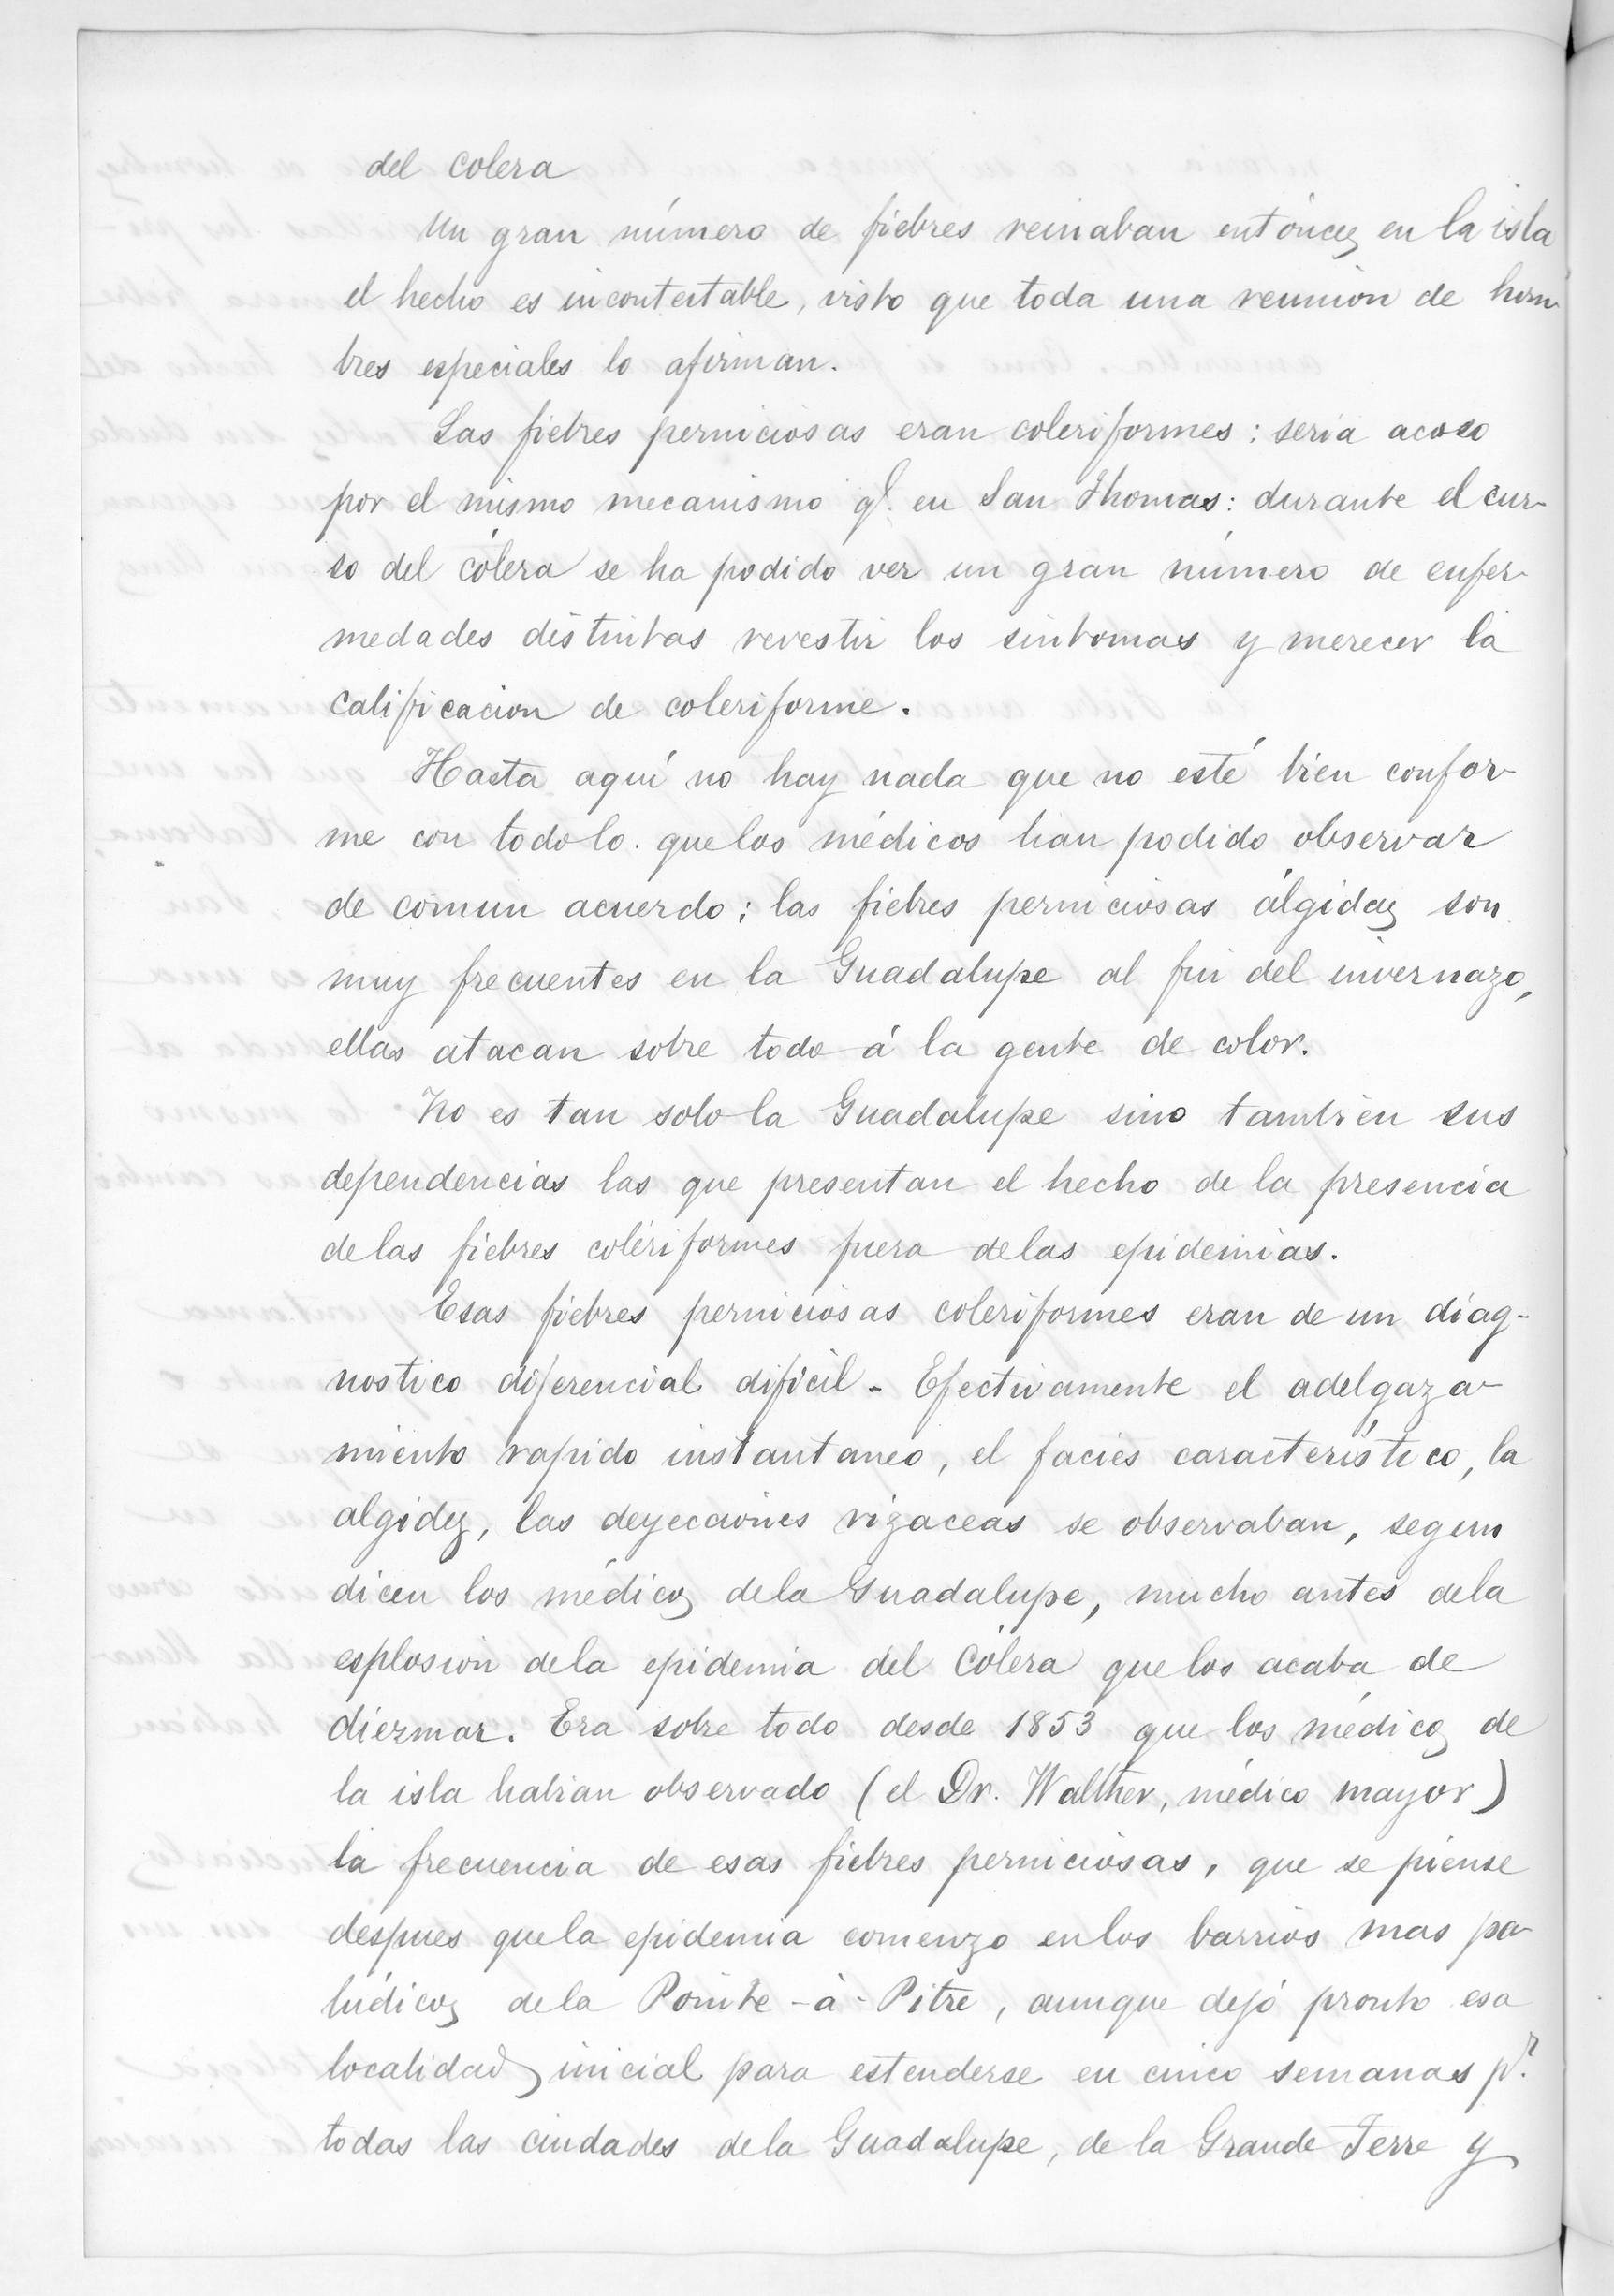 del colera
Un gran número de fiebres reinaban entónces en la isla
el hecho es incontestable, visto que toda una reunion de hom
bres especiales lo afirman.
Las fiebres perniciosas eran coleriformes: seria acaso
por el mismo mecanismo qe. en San Thomas: durante el cur-
so del cólera se ha podido ver un gran número de enfer-
medades distintas revestir los sintomas y merecer la
calificacion de coleriforme.
Hasta aquí no hay nada que no esté bien confor-
me con todo lo. que los médicos han podido observar
de comun acuerdo; las fiebres perniciosas álgidas son
muy frecuentes en la Guadalupe al fin del invernazo,
ellas atacan sobre todo á la gente de color.
No es tan solo la Guadalupe sino tambien sus
dependencias las que presentan el hecho de la presencia
de las fiebres colériformes fuera de las epidemias.
Esas fiebres perniciosas coleriformes eran de un diag-
nostico diferencial dificil. Efectivamente el adelgaza-
miento rapido instantaneo, el facies característico, la
algidez, las deyecciones rizaceas se observaban, segun
dicen los médicos de la Guadalupe, mucho antes de la
esplosion de la epidemia del Cólera que los acaba de
diezmar. Era sobre todo desde 1853 que los médicos de
la isla habian observado (el Dr. Walther, médico mayor)
la frecuencia de esas fiebres perniciosas, que se piense
despues que la epidemia comenzo en los barrios mas pa-
lúdicos de la Pointe-à-Pitre, aunque dejó pronto esa
localidad inicial para estenderse en cinco semanas pr.
todas las ciudades de la Guadalupe, de la Grande Terre y